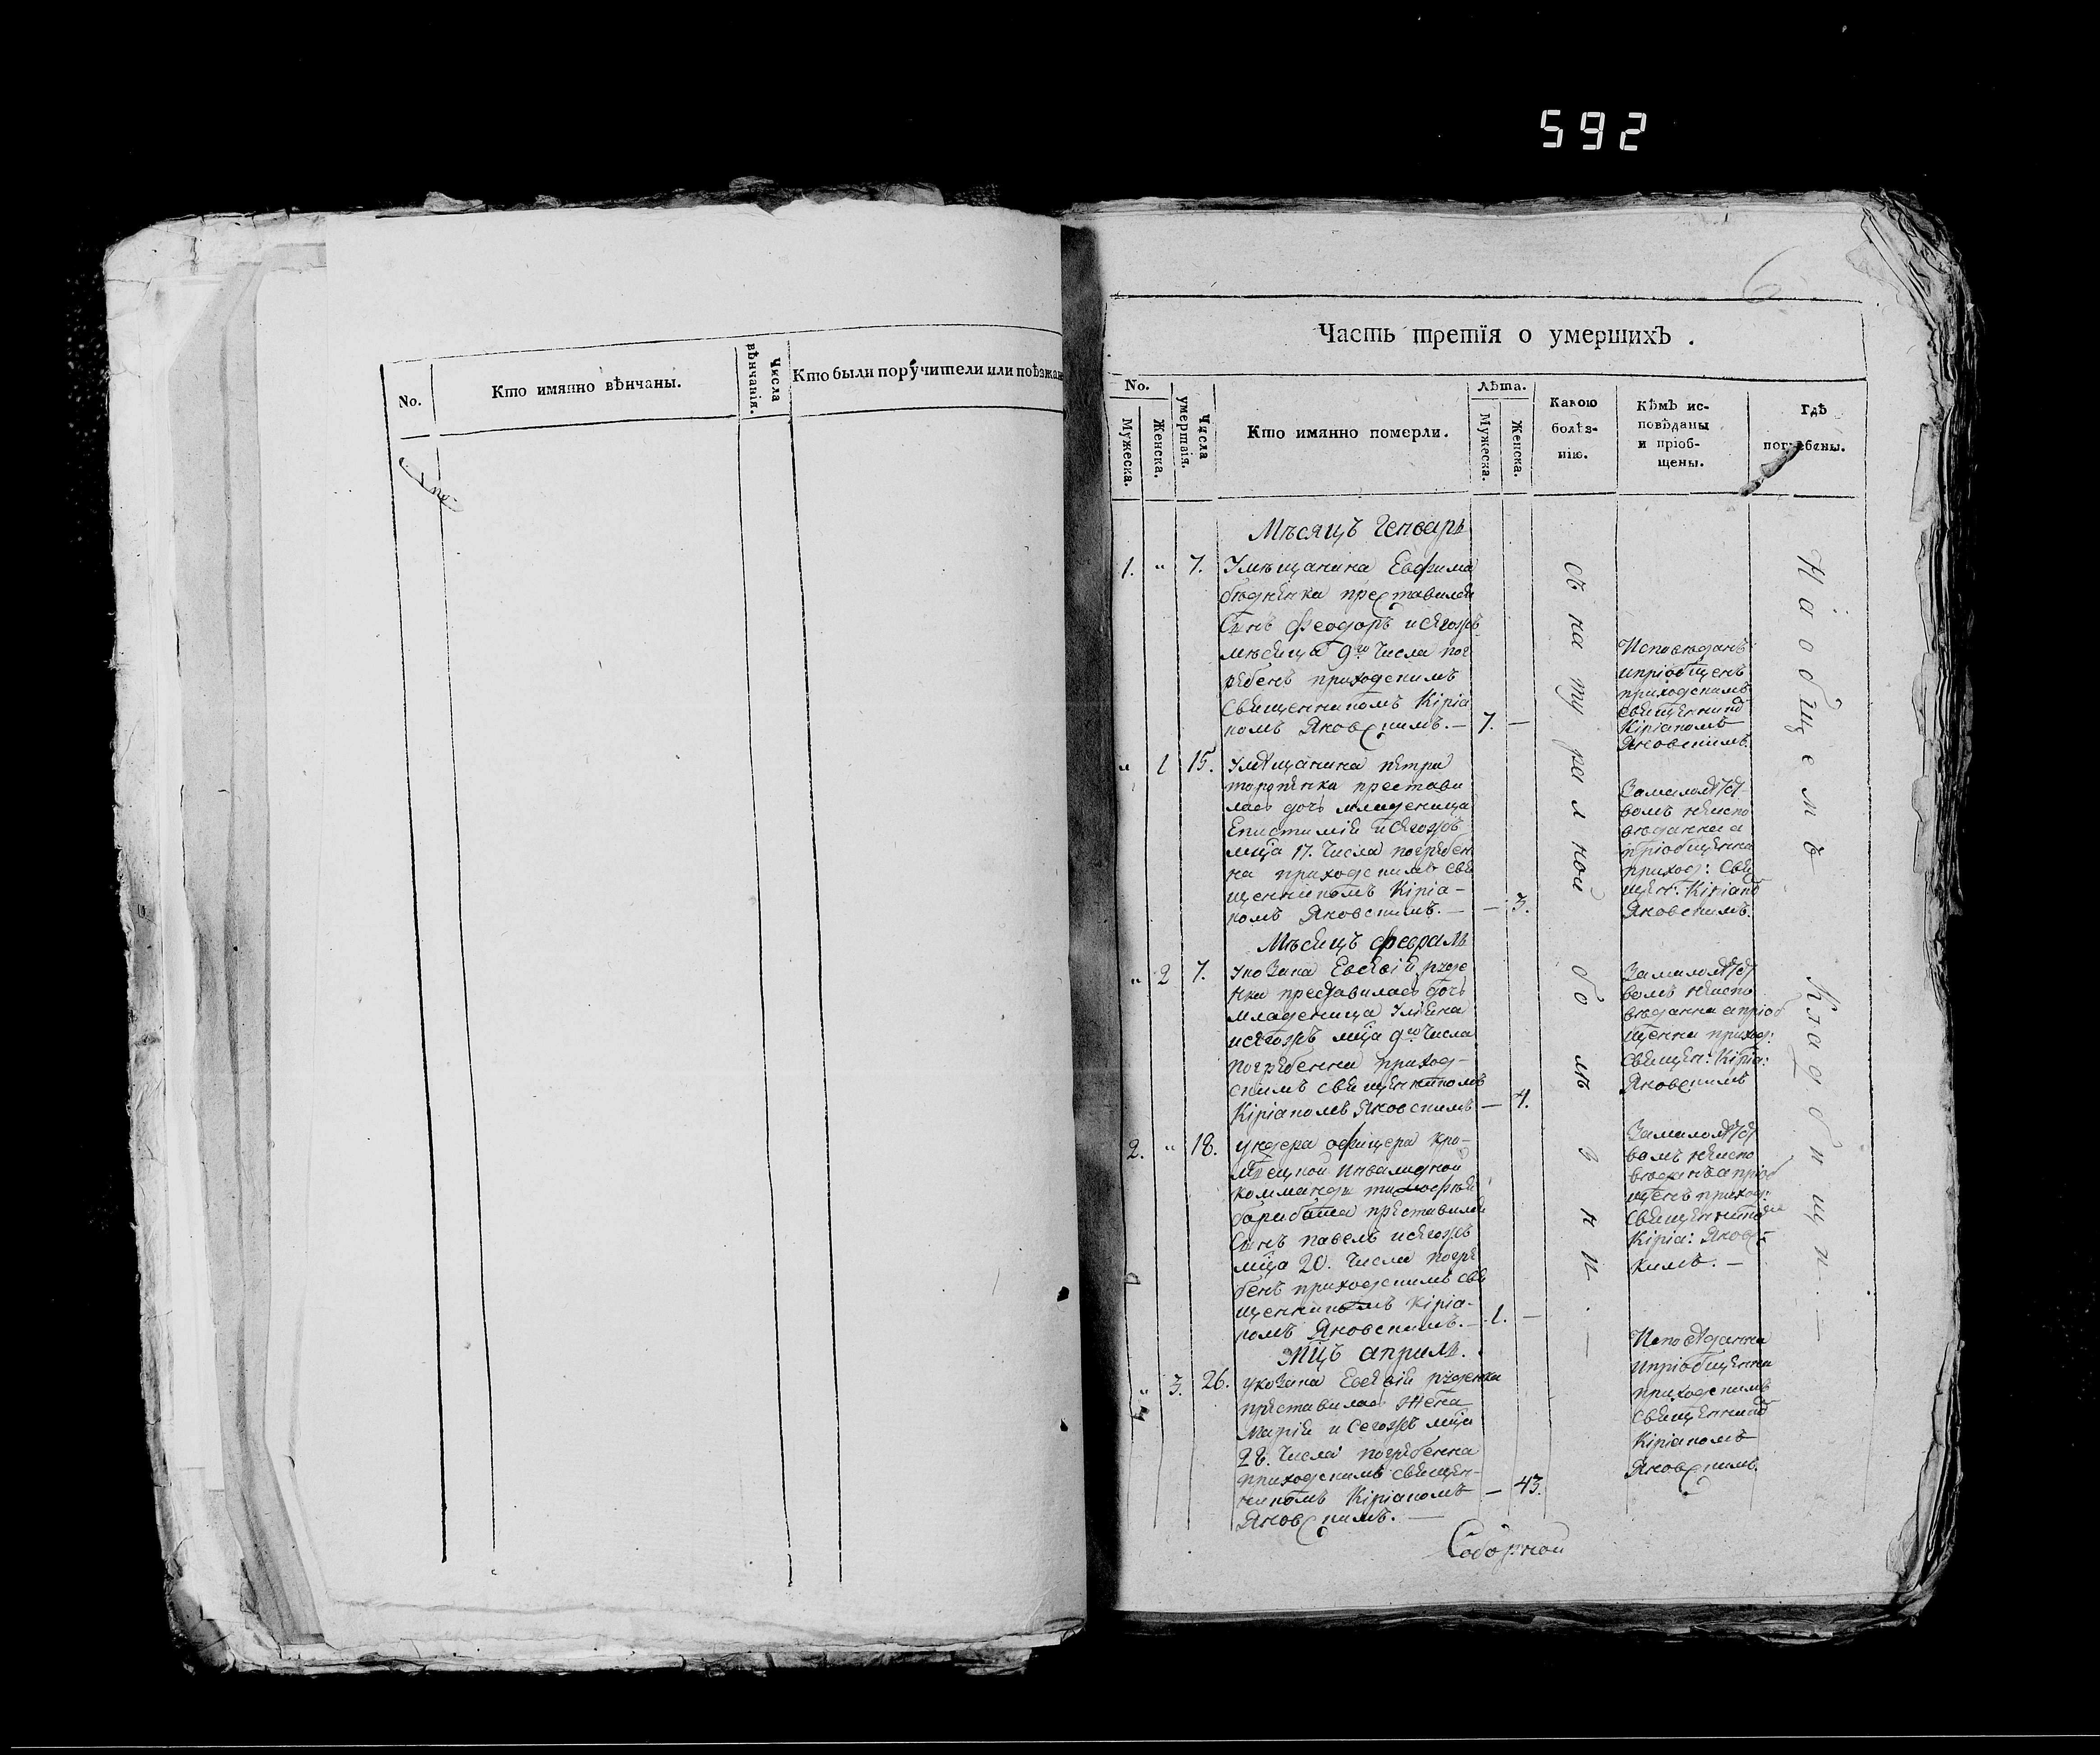 592
No.
Кто имянно вѣнчаны.
Числа
вѣнчанія.
Кто были поручители или поѣзжан
6
Часть третїя о умершихъ.
No.
Мужеска.
Женска.
Числа
умертвія.
Кто имянно померли.
Лѣта.
Мужеска.
Женска.
Какою
болѣз-
нію.
Кѣмъ ис-
повѣданы
и пріоб-
щены.
Гдѣ
погребены.
Мѣсяцъ Генварь
1. " 7. Умѣщанина Евфима
преставился
Сынъ Феодоръ исегожъ
мѣсяца 9го Числа пог
ребенъ приходскимъ
Священникомъ Кіріа
комъ Яновскимъ. — 7. —
Исповѣданъ
ипріобщенъ
приходскимъ
священико
Кіріакомъ
Яновскимъ.
" 1 15. Умѣщанина петра
престави
лась дочь младеница
Епистимія исегожъ
мца 17. Числа погребен
на приходскимъ свя
щенникомъ Кіріа-
комъ Яновскимъ. — — 3.
вомъ неиспо
вѣданна а
пріобщенна
приход: Свя
щен: Кіріако
Яновскимъ.
Мѣсяцъ февраль
" 2 7. Укозака Евсѣвія
преставилась дочь
младеница Уліяна
исегожъ мца 9го Числа
погребенна приход-
скимъ священникомъ
Кіріакомъ Яновскимъ — 4.
вомъ неиспо
вѣданна апріоб
щенна приход:
священ: Кіріа:
Яновскимъ
2. " 18. ундера офицера Кро-
инвалидной
комманды тимофѣя
преставился
Сынъ павелъ исегожъ
мца 20. Числа погре
бенъ приходскимъ свя
щенникомъ Кіріа-
комъ Яновскимъ. — 1. —
вомъ неиспо
вѣданъ апріоб
щенъ приход:
священнико
Кіріа: Яновс
кимъ. —
мцъ априль.
" 3. 26. укозака Евсѣвія
преставилась Жена
Марія и Сегожъ мца
28. Числа погребенна
приходскимъ священ-
никомъ Кіріакомъ — 43.
Яновскимъ. —
Исповѣданна
ипріобщенна
приходскимъ
священнико
Кіріакомъ
Яновскимъ.
Съ натуралной болѣзни. —
На общемъ Кладбищи. —
Соборной